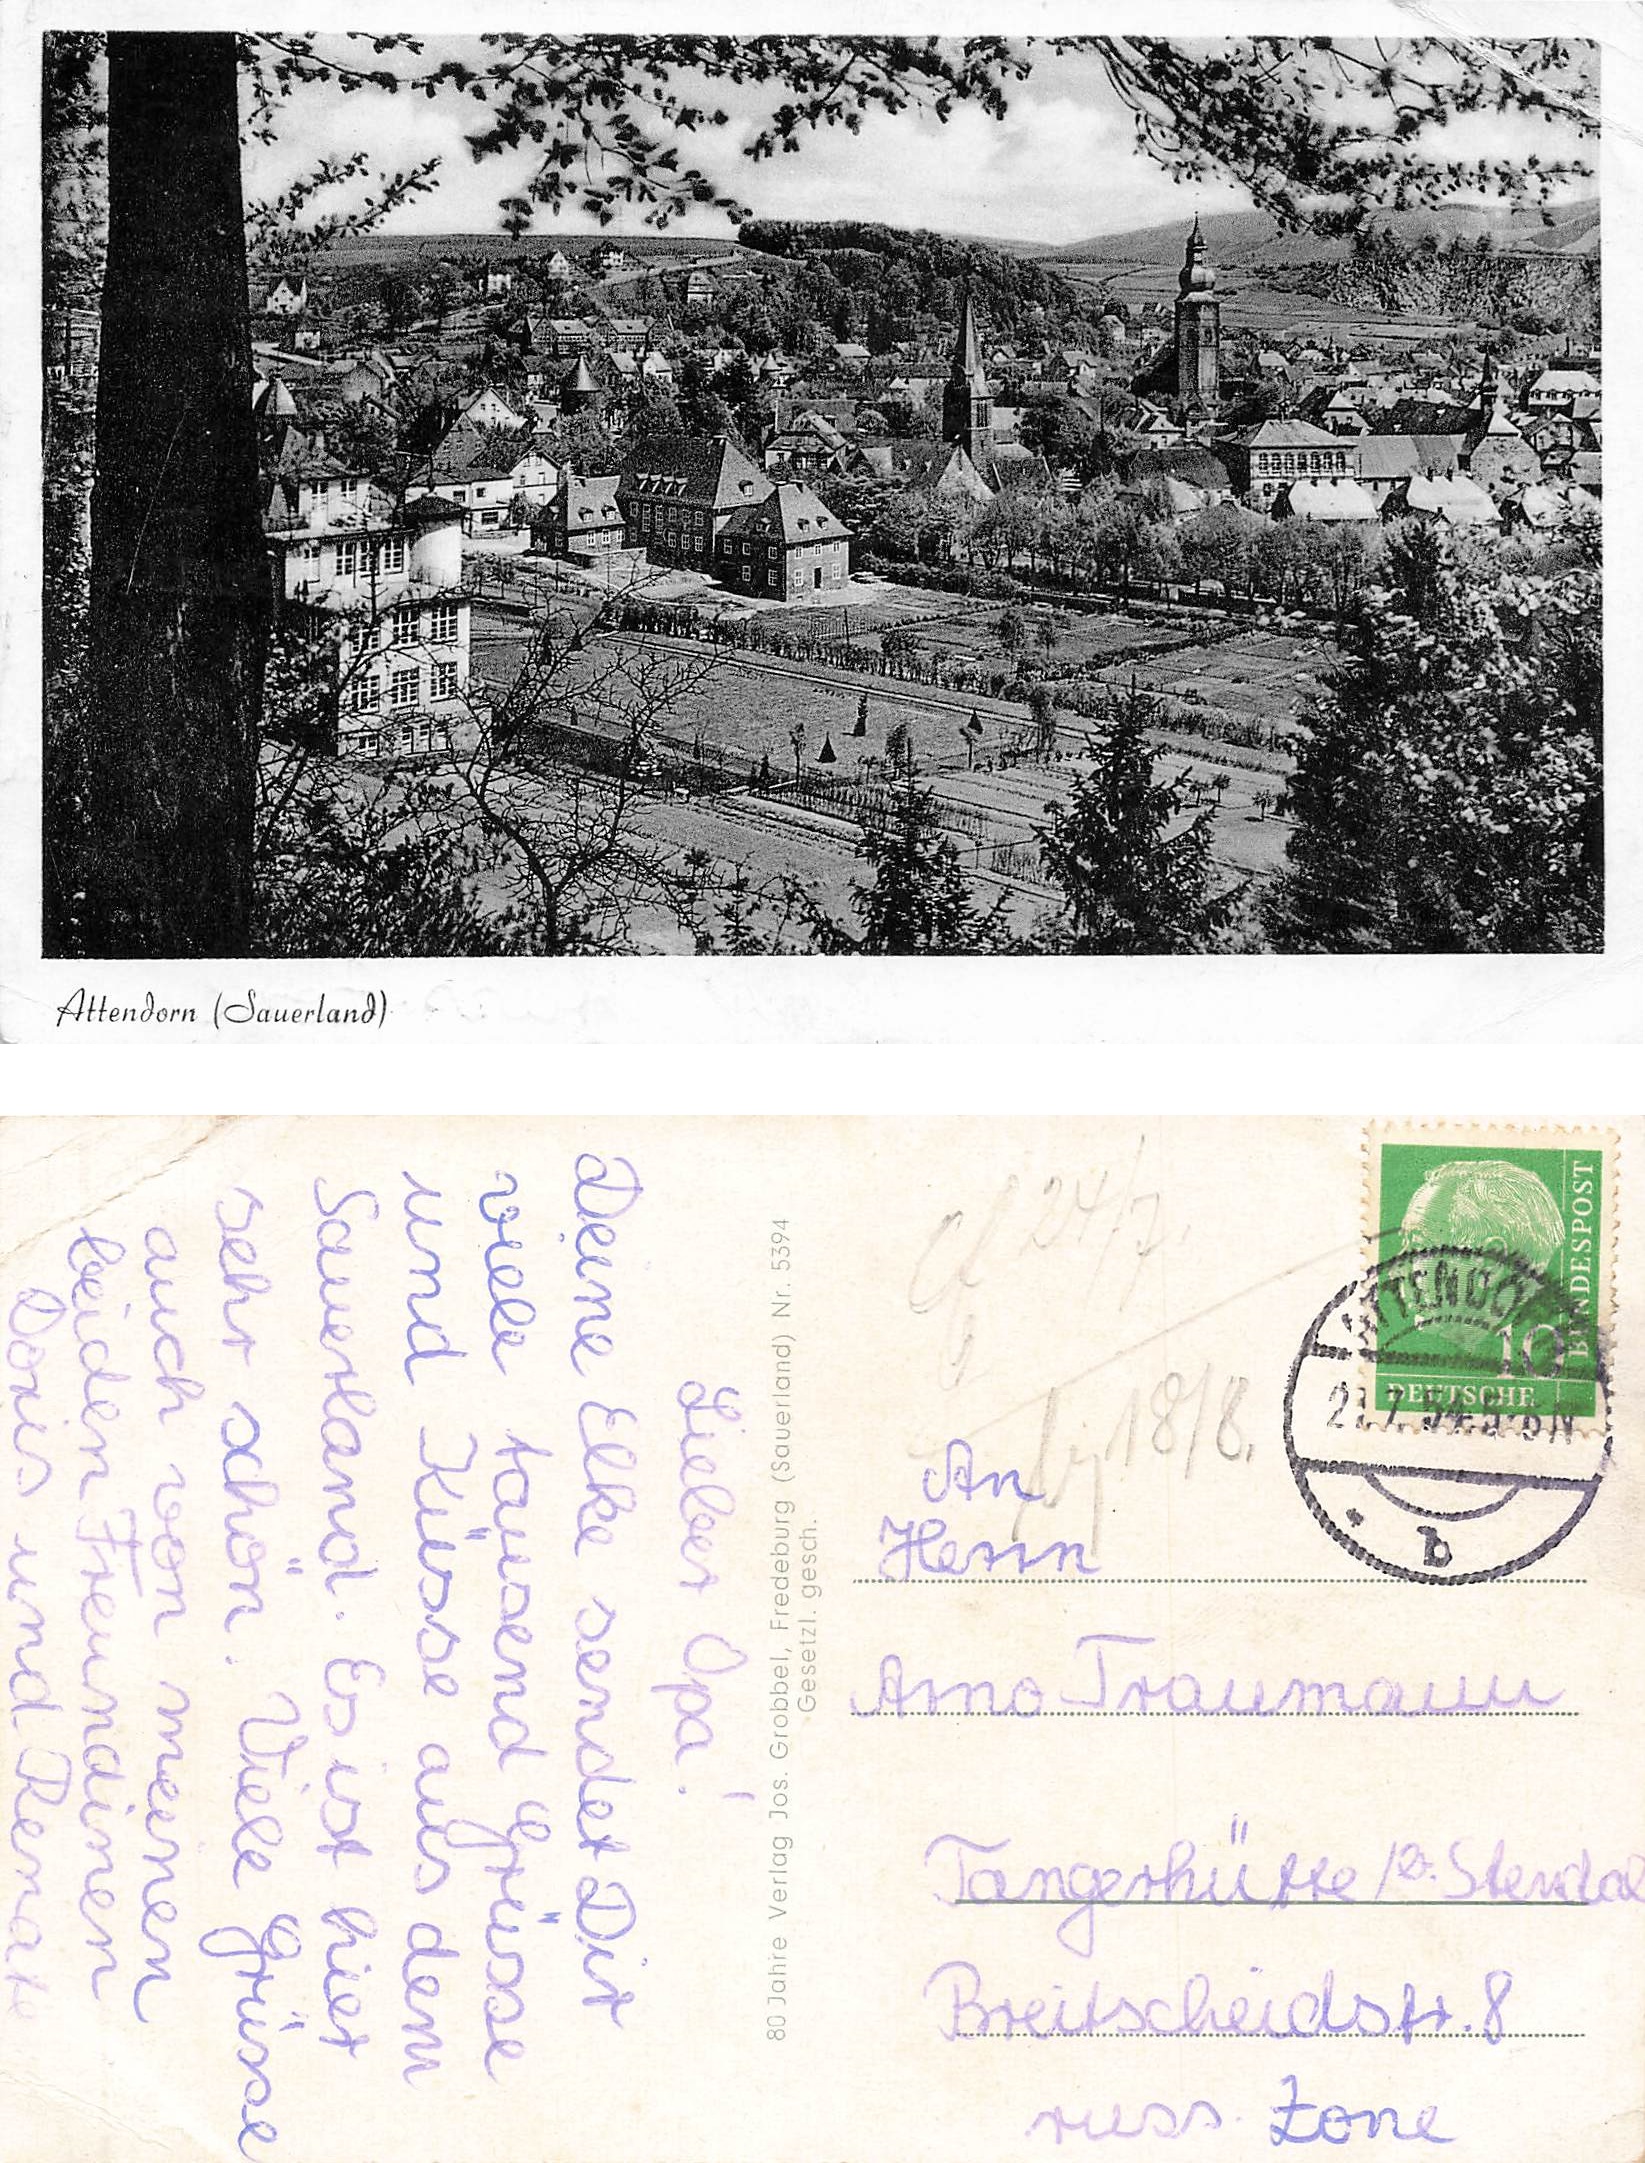 Attendorn (Sauerland)
Lieber Opa!
Deine Elke sendet Dir
viele tausend Grüsse
und Küsse aus dem
Sauerland. Es ist hier
sehr schön. Viele Grüsse
auch von meinen
beiden Freundinen
Doris und Renate
80 Jahre Verlag Jos. Grobbel, Fredeburg (Sauerland) Nr. 5394
Gesetzl. gesch.
24/7.
18/8.
DEUTSCHE
BUNDESPOST
10
ATTENDORN
b
An
Herrn
Arno Traumann
Tangerhütte / b. Stendal
Breitscheidstr. 8
russ. Zone